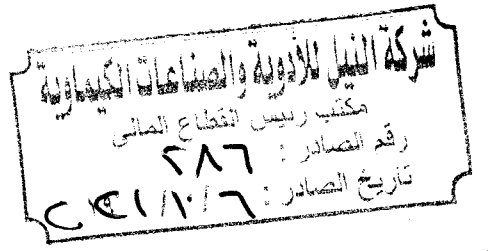 شركة النيل للأدوية والصناعات الكيماوية
مكتب رئيس القطاع المالى
رقم الصادر : ٢٨٦
تاريخ الصادر : ٢٠٢١/١٠/٦